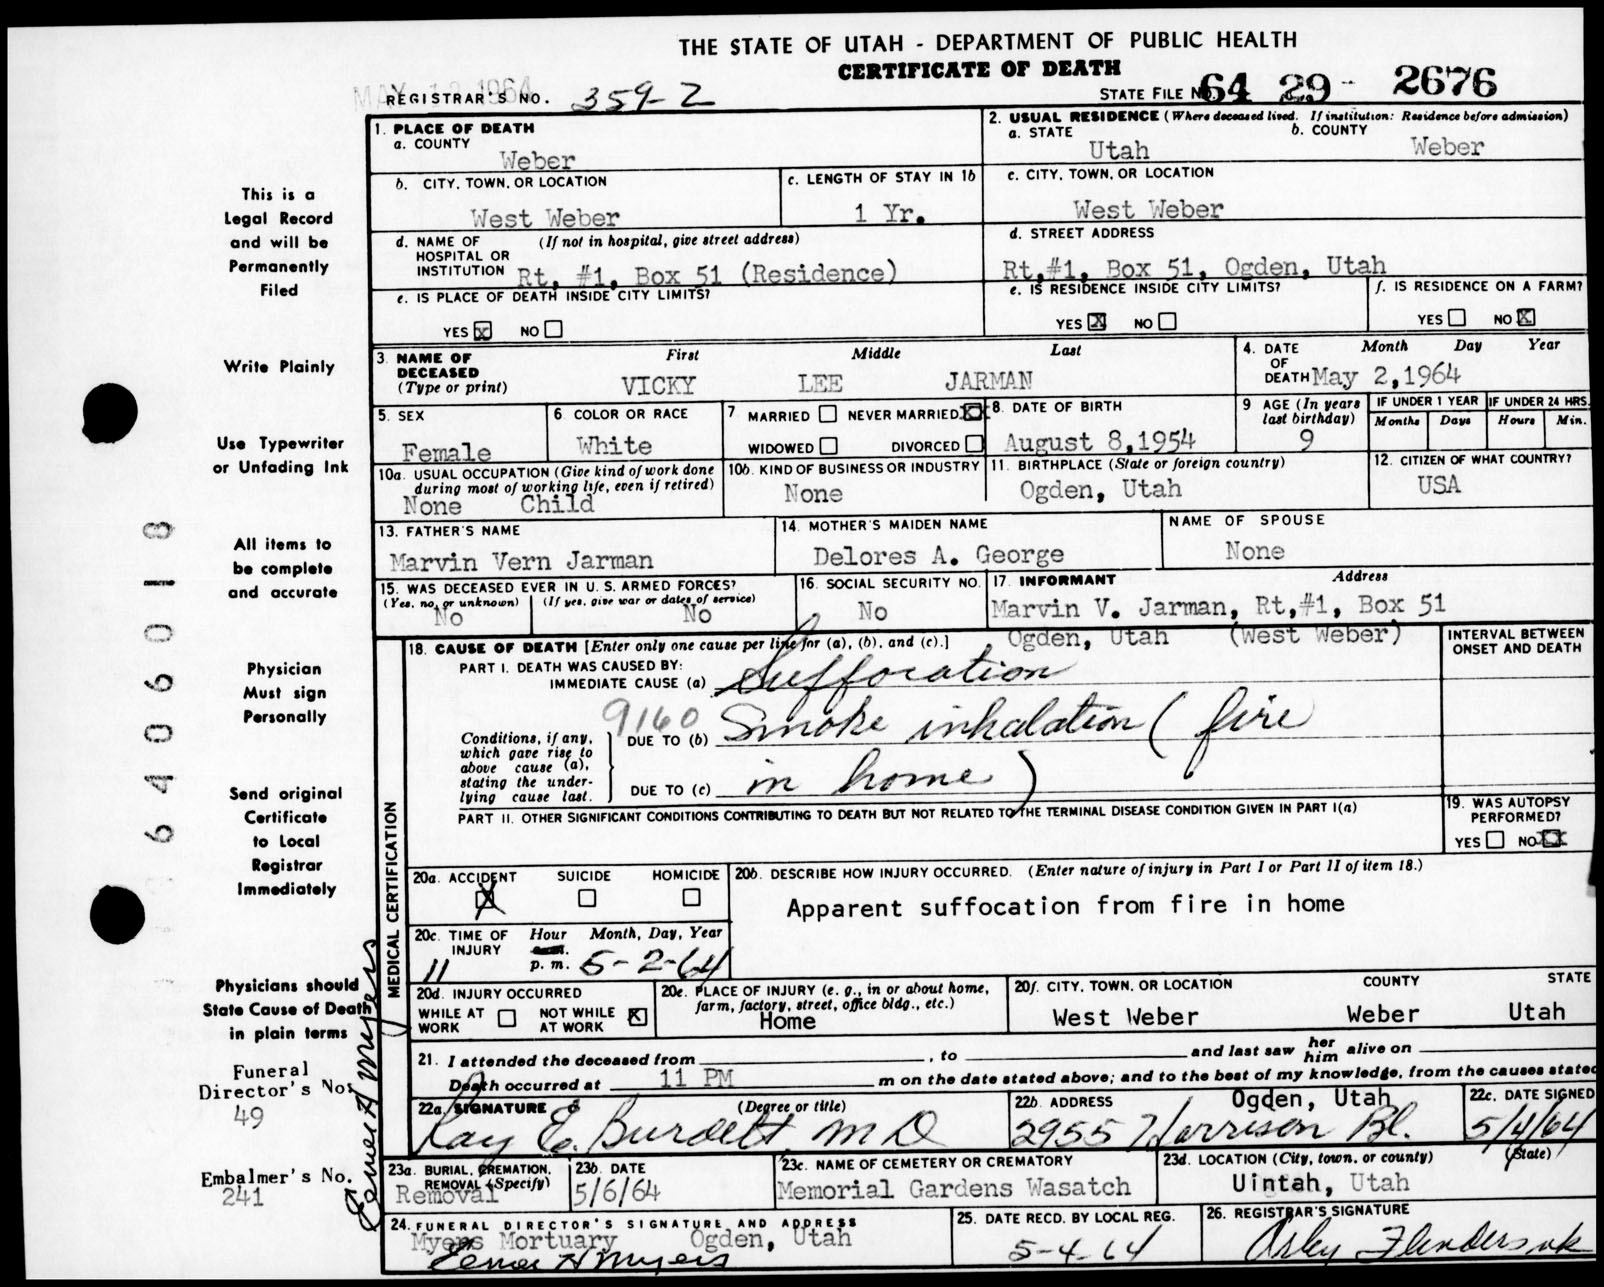 THE STATE OF UTAH - DEPARTMENT OF PUBLIC HEALTH
CERTIFICATE OF DEATH
MAY 12 1964
REGISTRAR'S NO. 359-2
STATE FILE NO. 64 29- 2676
1. PLACE OF DEATH
a. COUNTY
Weber
2. USUAL RESIDENCE (Where deceased lived. If institution: Residence before admission)
a. STATE b. COUNTY
Utah Weber
b. CITY, TOWN, OR LOCATION
West Weber
c. LENGTH OF STAY IN 1b
1 Yr.
c. CITY, TOWN, OR LOCATION
West Weber
d. NAME OF (If not in hospital, give street address)
HOSPITAL OR
INSTITUTION Rt, #1, Box 51 (Residence)
d. STREET ADDRESS
Rt,#1, Box 51, Ogden, Utah
e. IS PLACE OF DEATH INSIDE CITY LIMITS?
YES X NO
e. IS RESIDENCE INSIDE CITY LIMITS?
YES X NO
f. IS RESIDENCE ON A FARM?
YES NO X
3. NAME OF DECEASED
(Type or print)
First Middle Last
VICKY LEE JARMAN
4. DATE OF DEATH
Month Day Year
May 2,1964
5. SEX
Female
6 COLOR OR RACE
White
7 MARRIED NEVER MARRIED X
WIDOWED DIVORCED
8. DATE OF BIRTH
August 8,1954
9 AGE (In years last birthday)
9
IF UNDER 1 YEAR
Months Days
IF UNDER 24 HRS.
Hours Min.
10a. USUAL OCCUPATION (Give kind of work done
during most of working life, even if retired)
None Child
10b. KIND OF BUSINESS OR INDUSTRY
None
11. BIRTHPLACE (State or foreign country)
Ogden, Utah
12. CITIZEN OF WHAT COUNTRY?
USA
13. FATHER'S NAME
Marvin Vern Jarman
14. MOTHER'S MAIDEN NAME
Delores A. George
NAME OF SPOUSE
None
15. WAS DECEASED EVER IN U. S. ARMED FORCES?
(Yes, no, or unknown) (If yes, give war or dates of service)
No No
16. SOCIAL SECURITY NO.
No
17. INFORMANT Address
Marvin V. Jarman, Rt,#1, Box 51
Ogden, Utah (West Weber)
MEDICAL CERTIFICATION
18. CAUSE OF DEATH [Enter only one cause per line for (a), (b), and (c).]
PART I. DEATH WAS CAUSED BY:
IMMEDIATE CAUSE (a) Suffocation
9160
Conditions, if any,
which gave rise to
above cause (a),
stating the under-
lying cause last.
DUE TO (b) Smoke inhalation ( fire
DUE TO (c) in home )
INTERVAL BETWEEN
ONSET AND DEATH
PART II. OTHER SIGNIFICANT CONDITIONS CONTRIBUTING TO DEATH BUT NOT RELATED TO THE TERMINAL DISEASE CONDITION GIVEN IN PART I(a)
19. WAS AUTOPSY
PERFORMED?
YES NO X
20a. ACCIDENT SUICIDE HOMICIDE
X
20b. DESCRIBE HOW INJURY OCCURRED. (Enter nature of injury in Part I or Part II of item 18.)
Apparent suffocation from fire in home
20c. TIME OF INJURY
Hour Month, Day, Year
11 p. m. 5-2-64
20d. INJURY OCCURRED
WHILE AT WORK NOT WHILE AT WORK X
20e. PLACE OF INJURY (e. g., in or about home,
farm, factory, street, office bldg., etc.)
Home
20f. CITY, TOWN, OR LOCATION COUNTY STATE
West Weber Weber Utah
21. I attended the deceased from , to and last saw her him alive on
Death occurred at 11 PM m on the date stated above; and to the best of my knowledge, from the causes stated
22a. SIGNATURE (Degree or title)
Ray E. Burdett M D
22b. ADDRESS Ogden, Utah
2955 Harrison Bl.
22c. DATE SIGNED
5/4/64
23a. BURIAL, CREMATION,
REMOVAL (Specify)
Removal
23b. DATE
5/6/64
23c. NAME OF CEMETERY OR CREMATORY
Memorial Gardens Wasatch
23d. LOCATION (City, town, or county) (State)
Uintah, Utah
24. FUNERAL DIRECTOR'S SIGNATURE AND ADDRESS
Myers Mortuary Ogden, Utah
25. DATE RECD. BY LOCAL REG.
5-4-64
26. REGISTRAR'S SIGNATURE
This is a
Legal Record
and will be
Permanently
Filed
Write Plainly
Use Typewriter
or Unfading Ink
All items to
be complete
and accurate
Physician
Must sign
Personally
Send original
Certificate
to Local
Registrar
Immediately
Physicians should
State Cause of Death
in plain terms
Funeral
Director's No.
49
Embalmer's No.
241
6406018